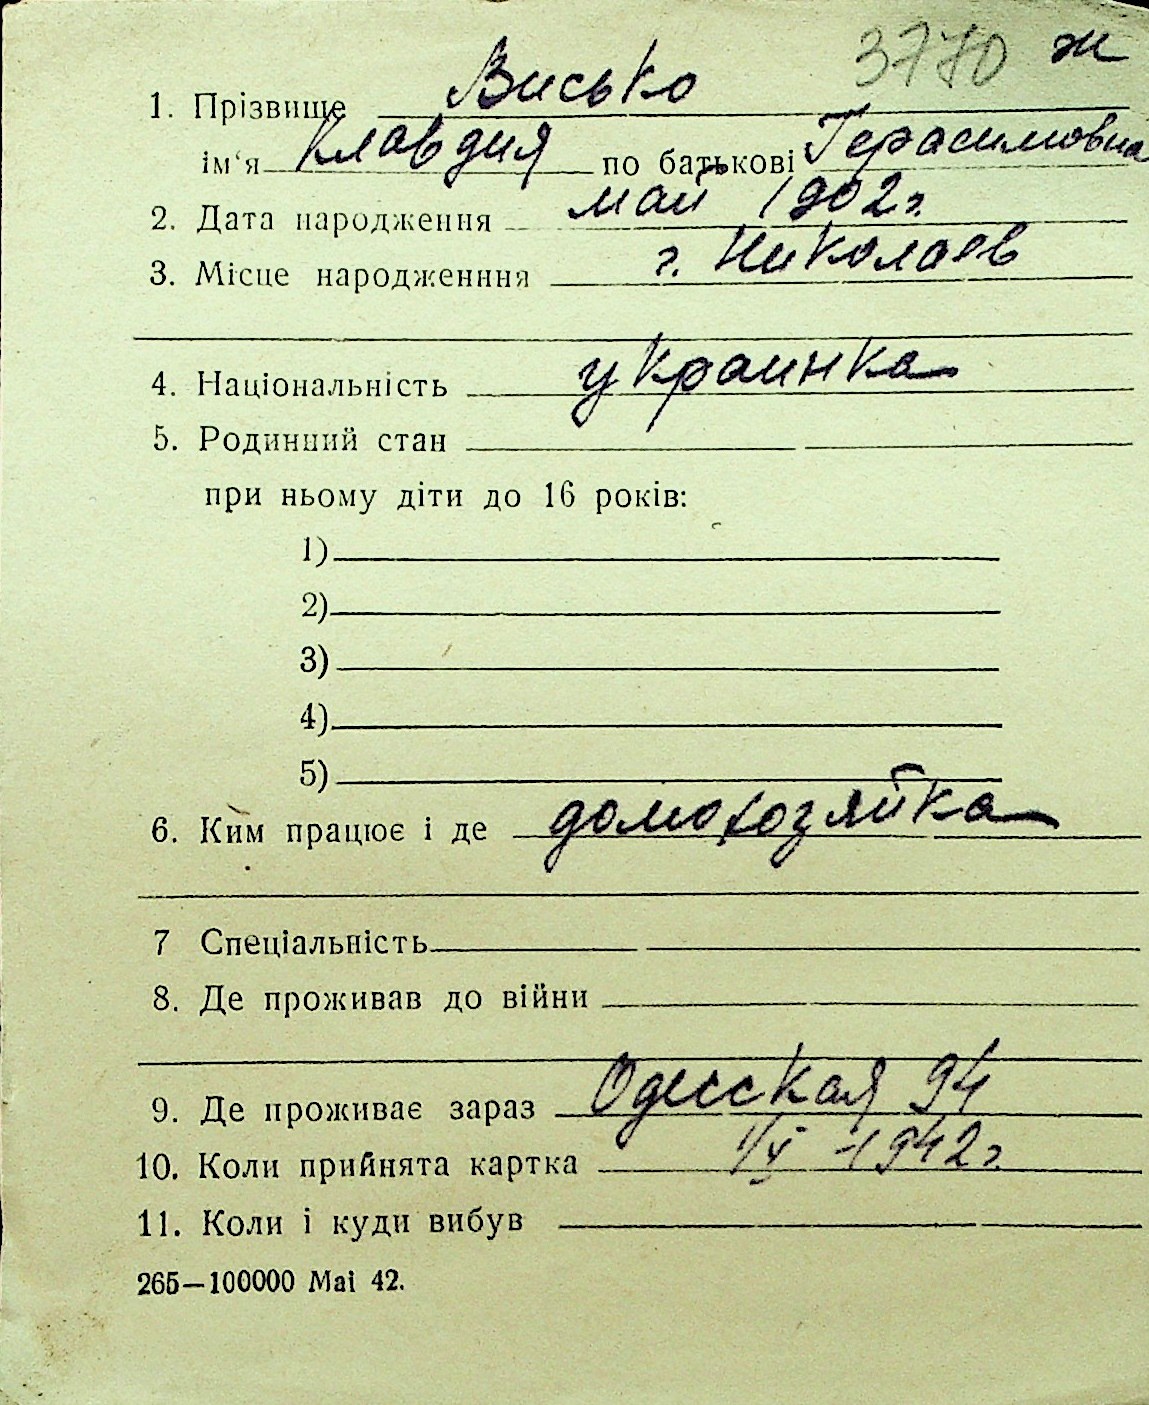 3770 ж
1. Прізвище Висько
ім'я Клавдия по батькові Герасимовна
2. Дата народження май 1902 г.
3. Місце народженння г. Николаев
4. Національність украинка
5. Родинний стан
при ньому діти до 16 років:
1)
2)
3)
4)
5)
6. Ким працює і де домохозяйка
7 Спеціальність
8. Де проживав до війни
9. Де проживає зараз Одесская 94
10. Коли прийнята картка 1/X 1942 г.
11. Коли і куди вибув
265—100000 Mai 42.